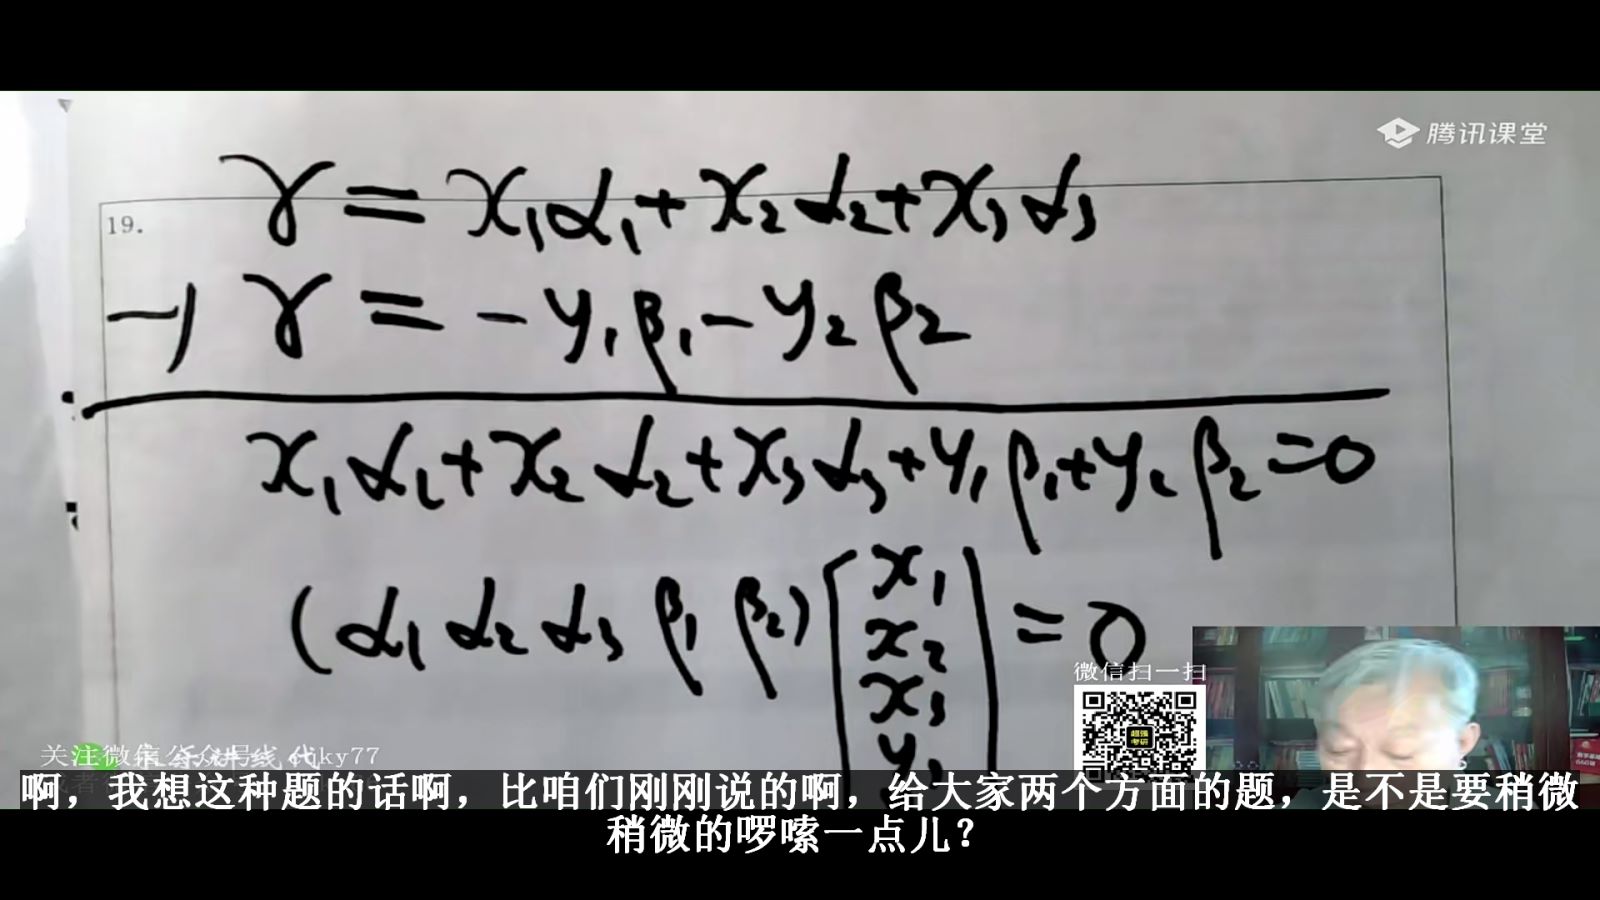 腾讯课堂
19.
γ=x₁α₁+x₂α₂+x₃α₃
-) γ=-y₁β₁-y₂β₂
x₁α₁+x₂α₂+x₃α₃+y₁β₁+y₂β₂=0
(α₁ α₂ α₃ β₁ β₂)[x₁ =0
x₂
x₃
微信扫一扫
关注微信公众号
ky77
啊，我想这种题的话啊，比咱们刚刚说的啊，给大家两个方面的题，是不是要稍微
稍微的啰嗦一点儿？